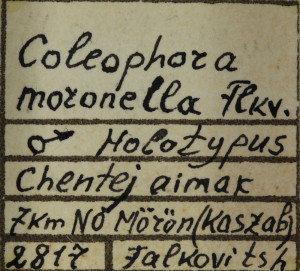 Coleophora
moronella Flkv.
♂ Holotypus
Chentej aimak
7km NO Mörön (Kaszab)
2817 Falkovitsh